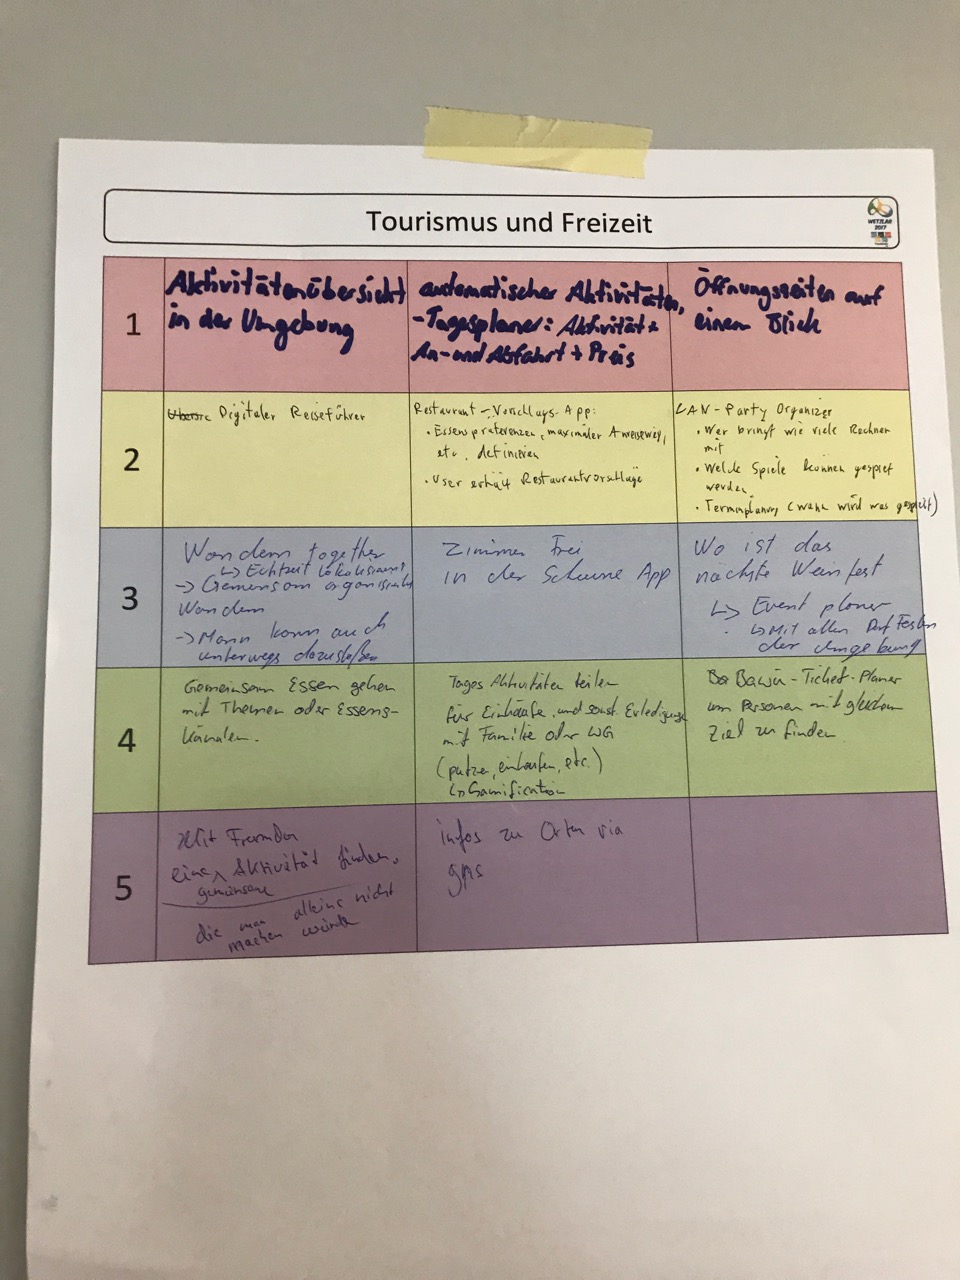 Tourismus und Freizeit
WETZLAR
2017
1
Aktivitätenübersicht
in der Umgebung
automatischer Aktivitäten,
-Tagesplaner: Aktivität +
An- und Abfahrt + Preis
Öffnungszeiten auf
einem Blick
2
Digitaler Reiseführer
Restaurant-Vorschlags-App:
• Essenspräferenzen, maximaler Anreiseweg,
etc. definieren
• User erhält Restaurantvorschläge
LAN-Party Organizer
• Wer bringt wie viele Rechner
mit
• Welche Spiele können gespielt
werden
• Terminplanung (wann wird was gespielt)
3
Wandern together
↳ Echtzeit lokalisierung
→ Gemeinsam organisiertes
Wandern
→ Mann kann auch
unterwegs dazustoßen
Zimmer Frei
in der Scheune App
Wo ist das
nächste Weinfest
↳ Event planer
↳ Mit allen Dorf Festen
der Umgebung
4
Gemeinsam Essen gehen
mit Themen oder Essens-
kanälen.
Tages Aktivitäten teilen
für Einkäufe, und sonst. Erledigunge
mit Familie oder WG
(putzen, einkaufen, etc.)
↳ Gamification
Bawü-Ticket-Planer
um Personen mit gleichem
Ziel zu finden.
5
Mit Fremden
eine Aktivität finden,
gemeinsame
die man alleine nicht
machen würde
infos zu Orten via
gps